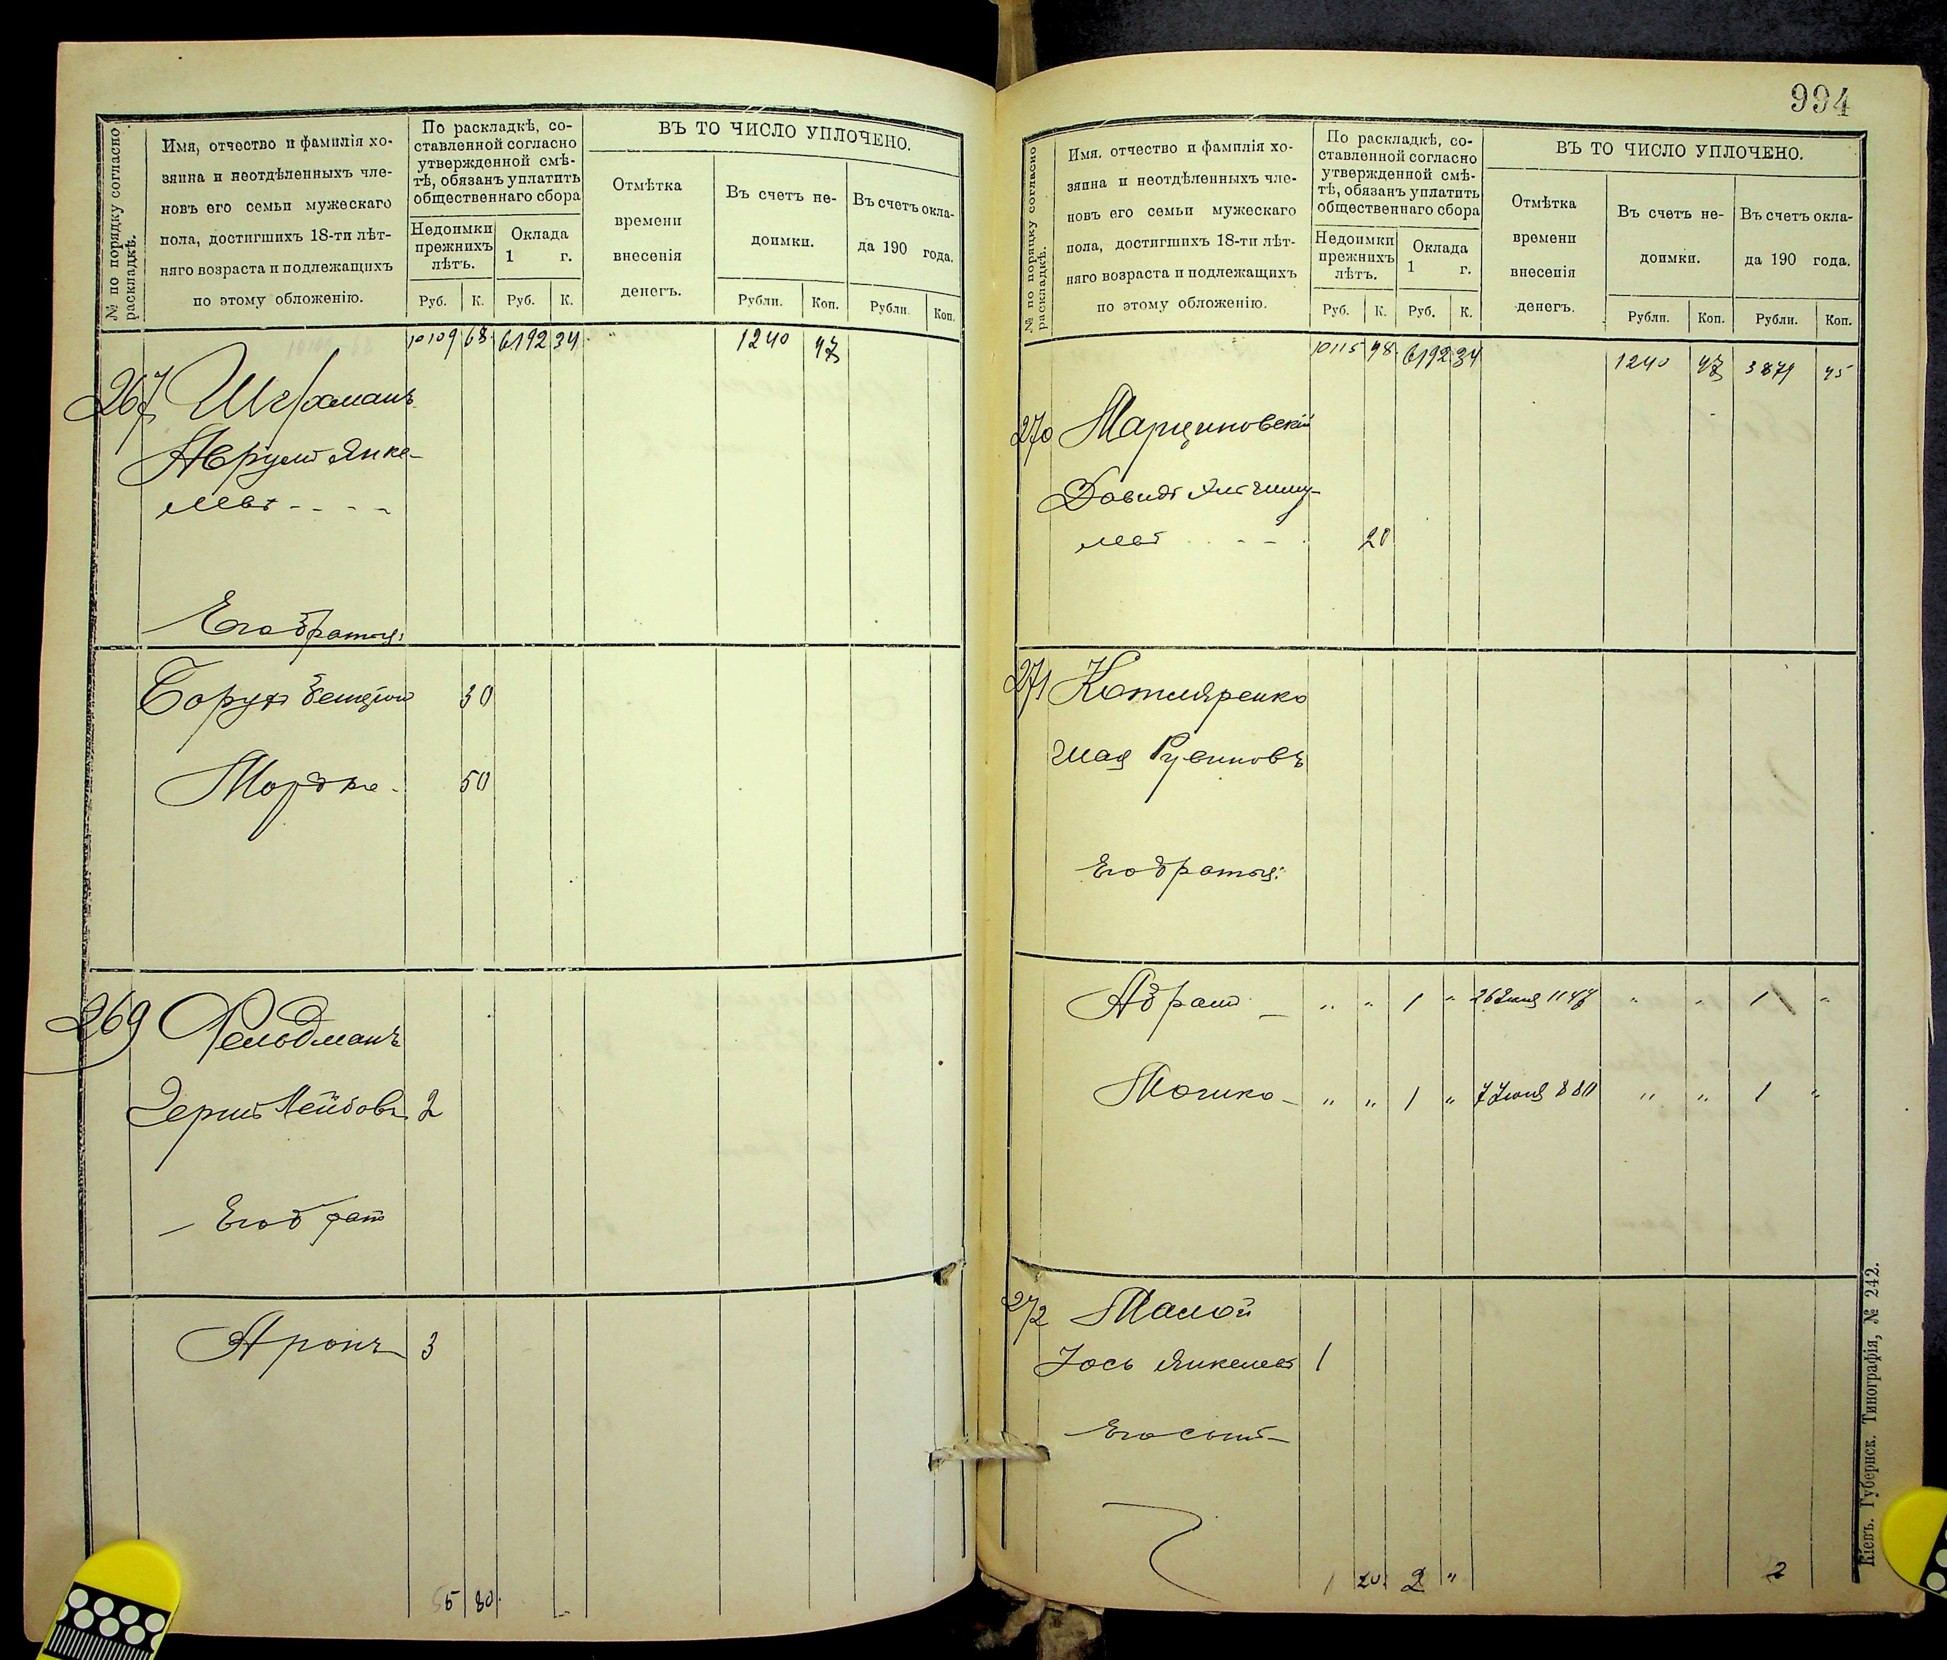 № по порядку согласно раскладкѣ.
Имя, отчество и фамилія хо-
зяина и неотдѣленныхъ чле-
новъ его семьи мужескаго
пола, достигшихъ 18-ти лѣт-
няго возраста и подлежащихъ
по этому обложенію.
По раскладкѣ, со-
ставленной согласно
утвержденной смѣ-
тѣ, обязанъ уплатить
общественнаго сбора
Недоимки
прежнихъ
лѣтъ.
Оклада
1 г.
Руб. К. Руб. К.
ВЪ ТО ЧИСЛО УПЛОЧЕНО.
Отмѣтка
времени
внесенія
денегъ.
Въ счетъ не-
доимки.
Рубли. Коп.
Въ счетъ окла-
да 190 года.
Рубли. Коп.
10109 68 6192 34 1240 47
267
Аврумъ Янке-
левъ
Его братья:
Борухъ 30
Мордко 50
269 Фельдманъ
Гершъ Лейбовъ 2
Его братъ
Аронъ 3
5 80
994
№ по порядку согласно раскладкѣ.
Имя, отчество и фамилія хо-
зяина и неотдѣленныхъ чле-
новъ его семьи мужескаго
пола, достигшихъ 18-ти лѣт-
няго возраста и подлежащихъ
по этому обложенію.
По раскладкѣ, со-
ставленной согласно
утвержденной смѣ-
тѣ, обязанъ уплатить
общественнаго сбора
Недоимки
прежнихъ
лѣтъ.
Оклада
1 г.
Руб. К. Руб. К.
ВЪ ТО ЧИСЛО УПЛОЧЕНО.
Отмѣтка
времени
внесенія
денегъ.
Въ счетъ не-
доимки.
Рубли. Коп.
Въ счетъ окла-
да 190 года.
Рубли. Коп.
10115 48 6192 34 1240 47 3879 45
270 Марциновскій
Давидъ
левъ 20
271 Котляренко
Шая Рувиновъ
Его братья:
Абрамъ " " 1 " " " 1 "
Мошко " " 1 " 7 Іюля 880 " " 1 "
272 Малой
Іось Янкелевъ 1
Его сынъ
1 20 2 " 2
Кіевъ. Губернск. Типографія, № 242.